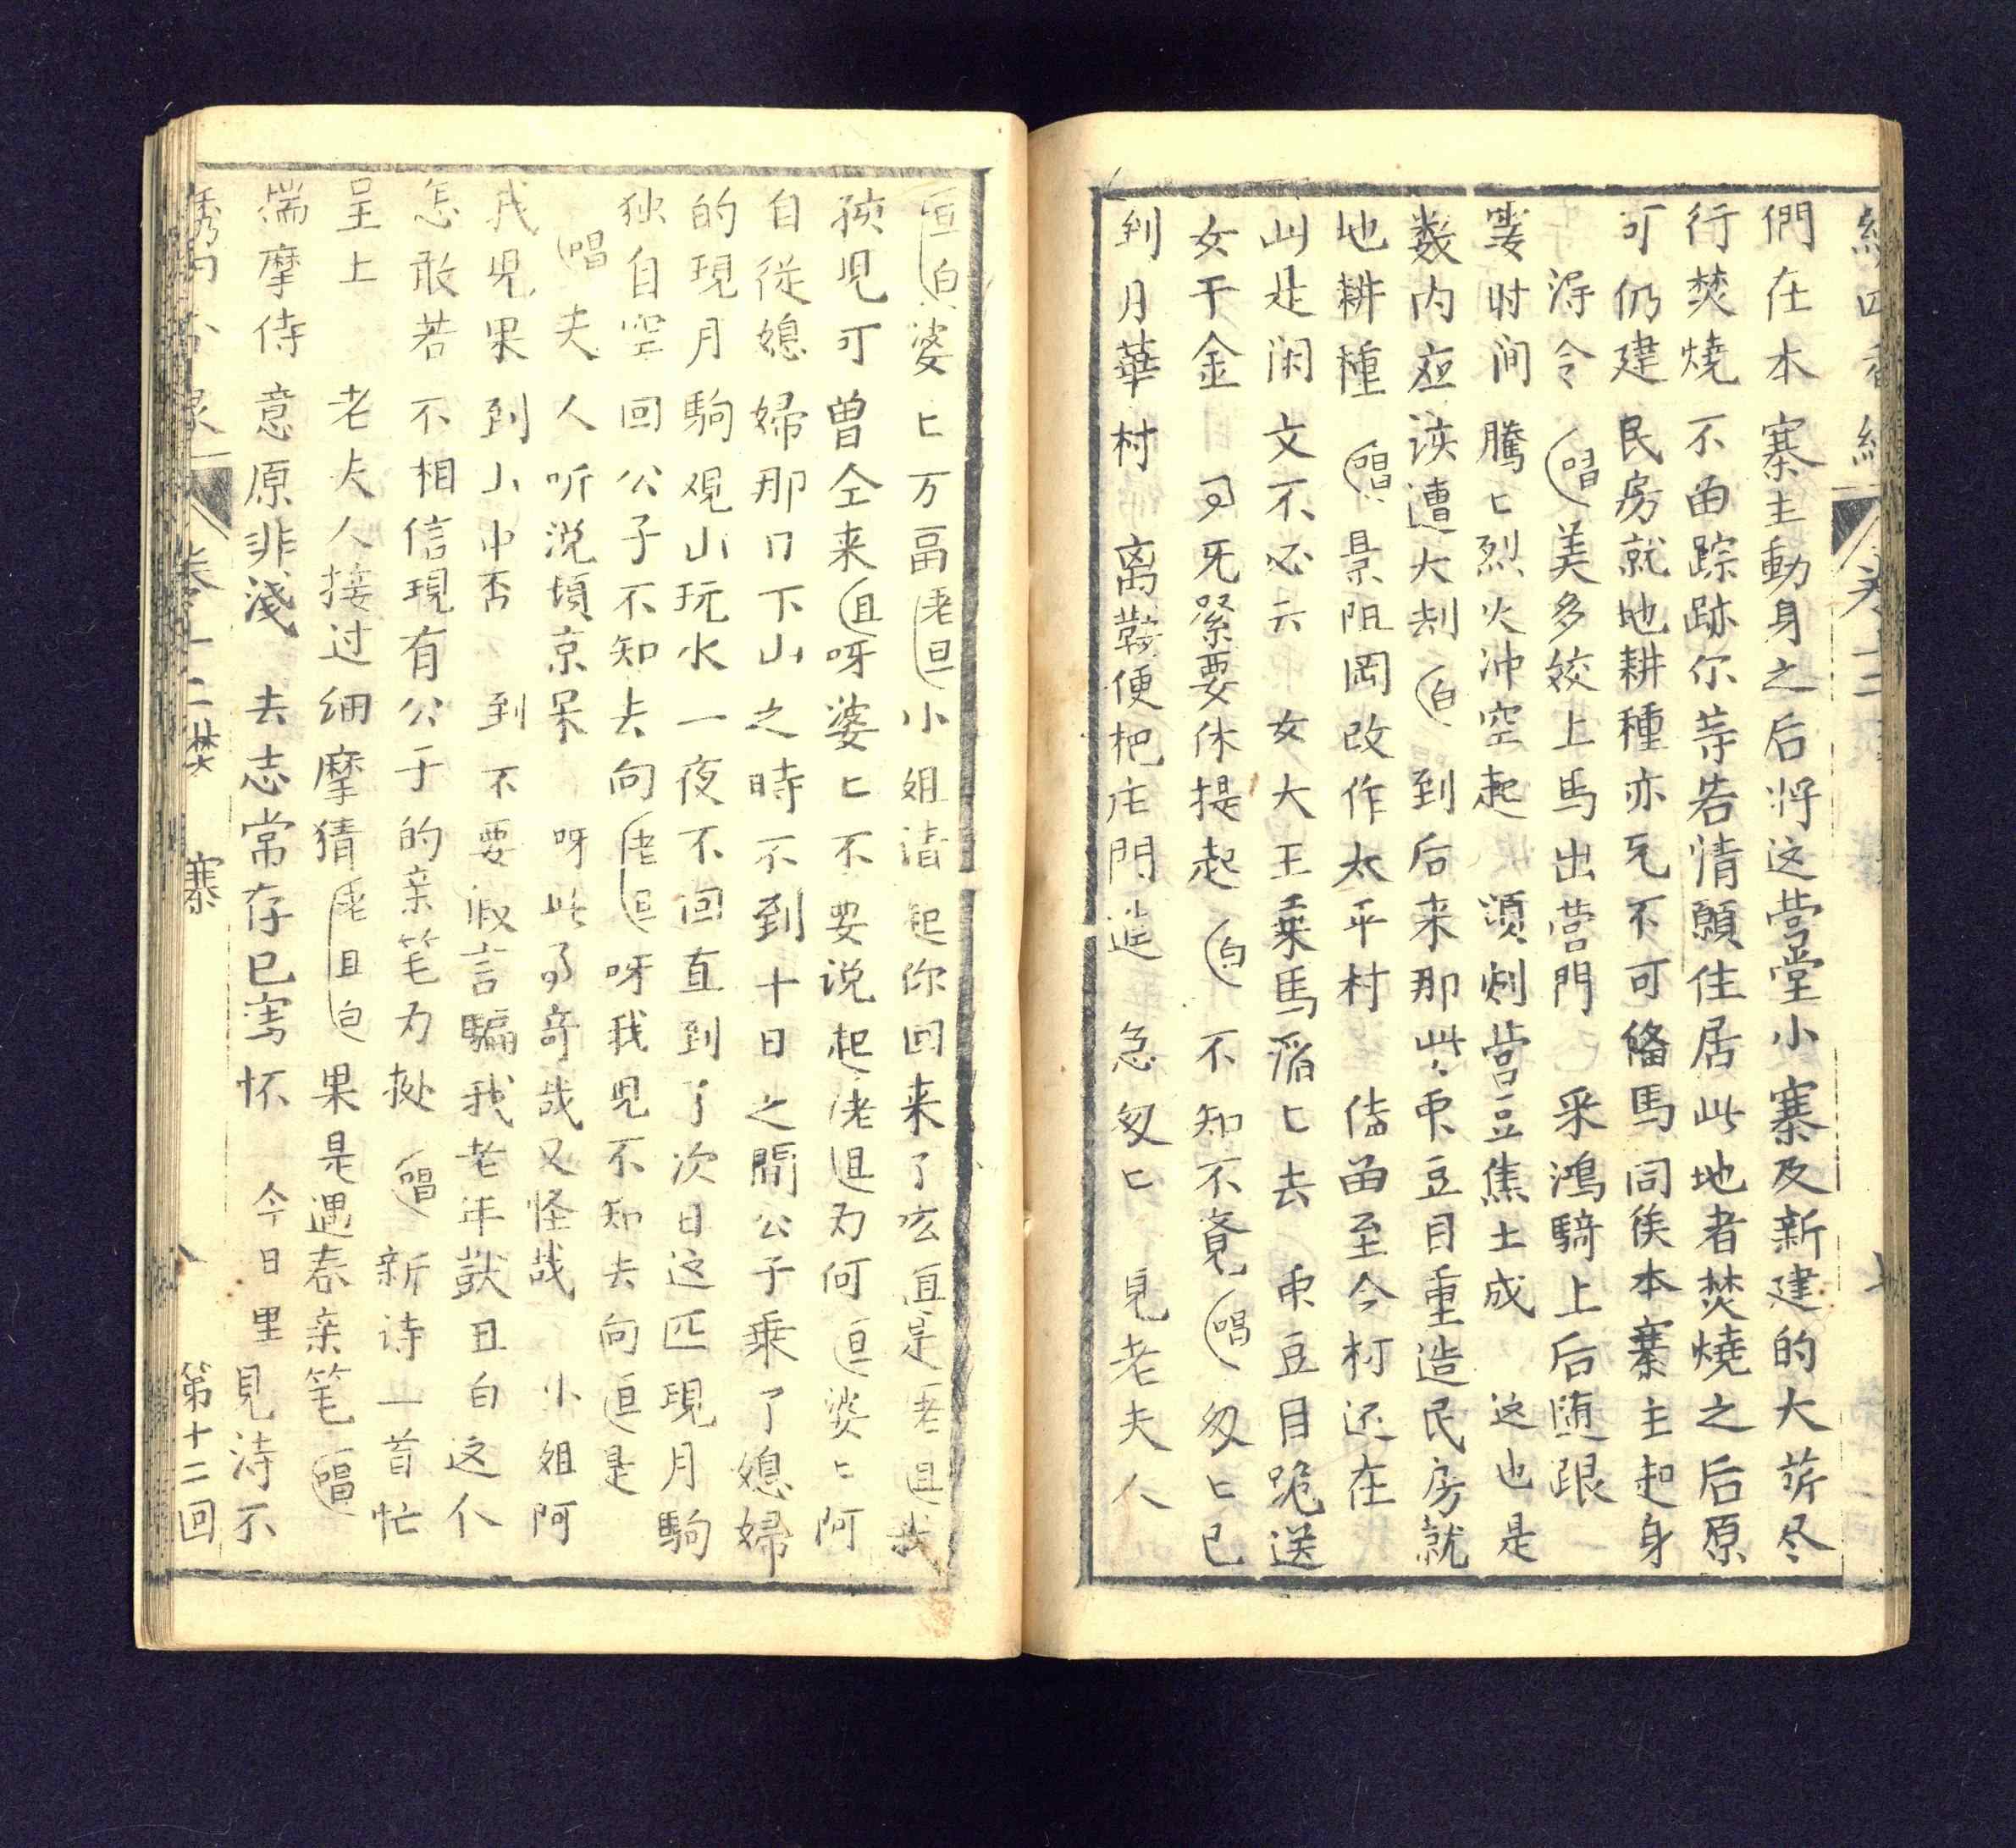 們在本寨主動身之后将这营堂小寨及新建的大䓑尽
行焚燒不畄踪跡尔䓁若情願住居此地者焚燒之后原
可仍建民房就地耕種亦旡不可俻馬同侯本寨主起身
淂令 唱 美多姣上馬出营門 采鴻騎上后随跟
霎时间騰匕烈火冲空起 湏刻营豆焦土成 这也是
数内应该遭大刼 白 到后来那些朿豆目重造民房就
地耕種 唱 景阳岡改作太平村 畄至今村还在
此是闲文不必云 女大王乗馬滔匕去 朿豆目跪送
女千金 旡紧要休提起 白 不知不覚 唱 匆匕已
到月華村 离鞍便把庄門進 急匆匕 見老夫人
旦白 婆匕万畐 老旦 小姐请起你回来了么 旦 是 老旦 我
孩児可曽仝来 旦 呀婆匕不要说起 老旦 为何 旦 婆匕阿
自從媳婦那日下山之時不到十日之間公子乗了媳婦
的現月駒观山玩水一夜不回直到了次日这匹現月駒
独自空回公子不知去向 老旦 呀我児不知去向 旦 是
唱 夫人听说頃京呆 呀此事奇哉又怪哉 小姐阿
我児果到山中否 到不要假言騙我老年獃 旦白 这个
怎敢若不相信現有公子的亲笔为処 唱 新诗一首忙
呈上 老夫人接过细摩猜 老旦白 果是遇春亲笔 唱
揣摩诗意原非淺 去志常存已寓怀 今日里見诗不
卷十二 焚寨 第十二回